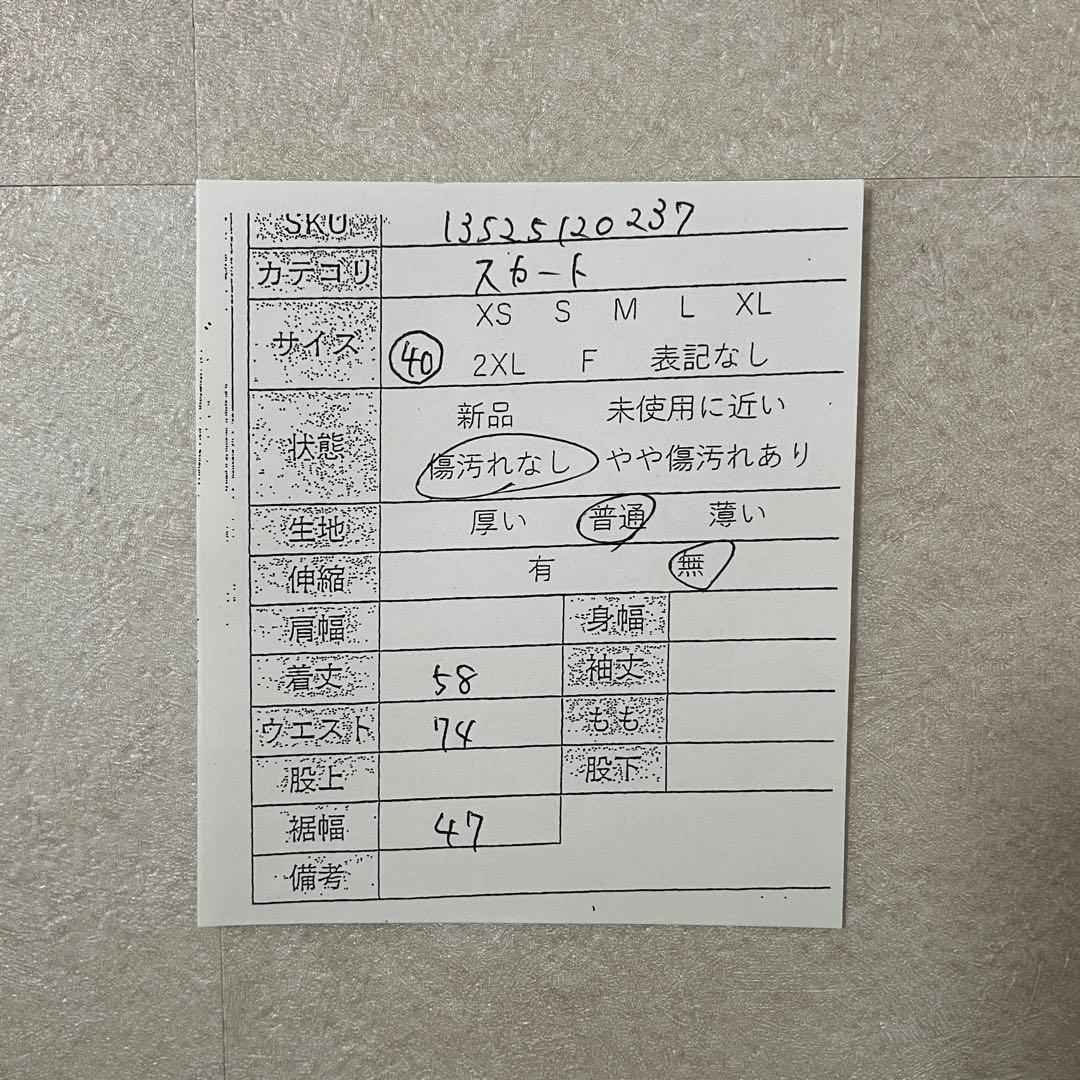 SKU 13525120237
カテゴリ スカート
サイズ XS S M L XL
40 2XL F 表記なし
状態 新品 未使用に近い
傷汚れなし やや傷汚れあり
生地 厚い 普通 薄い
伸縮 有 無
肩幅 身幅
着丈 58 袖丈
ウエスト 74 もも
股上 股下
裾幅 47
備考